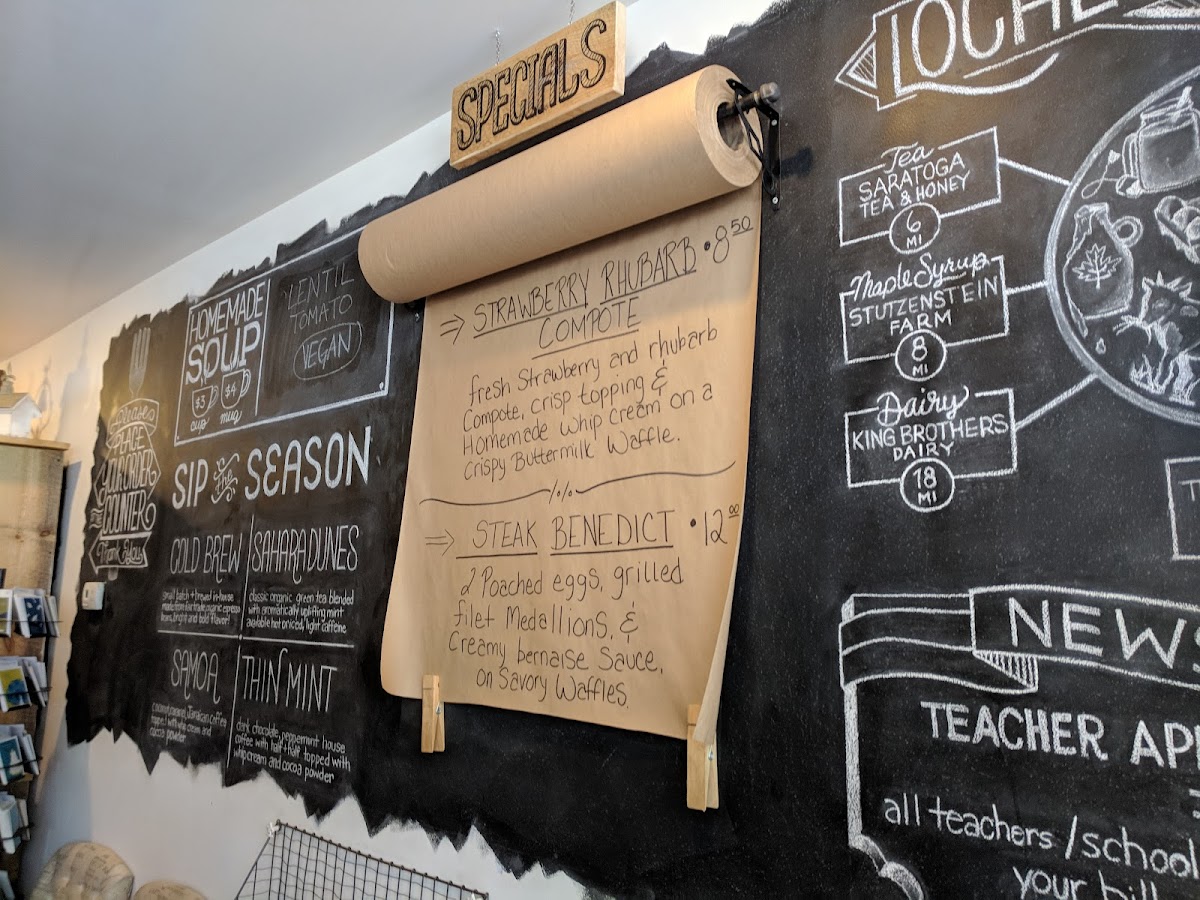 SPECIALS
STRAWBERRY RHUBARB • 8 50
COMPOTE
fresh Strawberry and rhubarb
Compote, crisp topping &
Homemade whip cream on a
crispy Buttermilk Waffle.
STEAK BENEDICT • 12 00
2 Poached eggs, grilled
filet Medallions, &
Creamy bernaise Sauce,
on Savory Waffles.
HOMEMADE
SOUP
$3
cup
$4
mug
LENTIL
TOMATO
VEGAN
Please
PLACE
YOUR ORDER
COUNTER
Thank You
SIP the SEASON
COLD BREW
small batch + brewed in-house
bright and bold flavor!
SAHARA DUNES
classic organic green tea blended
with aromatically uplifting mint
available hot or iced, light caffeine
SAMOA
coconut, caramel, Jamaican coffee
topped with whip cream and
cocoa powder
THIN MINT
dark chocolate, peppermint house
coffee with half + half topped with
whip cream and cocoa powder
Tea
SARATOGA
TEA & HONEY
6
MI
Maple Syrup
STUTZENSTEIN
FARM
8
MI
Dairy
KING BROTHERS
DAIRY
18
MI
NEWS
TEACHER
all teachers / school
your bill